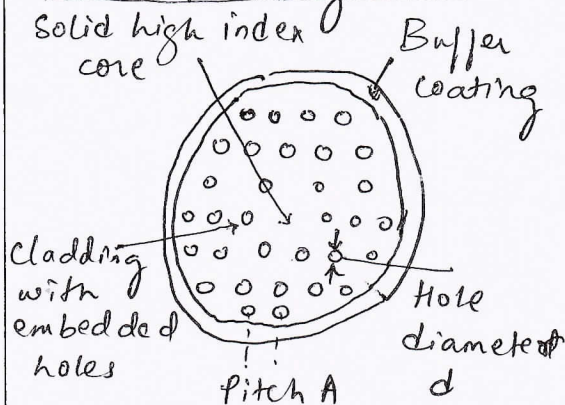 Solid high index
core
Buffer
coating
Cladding
with
embedded
holes
Hole
diameter
d
Pitch A